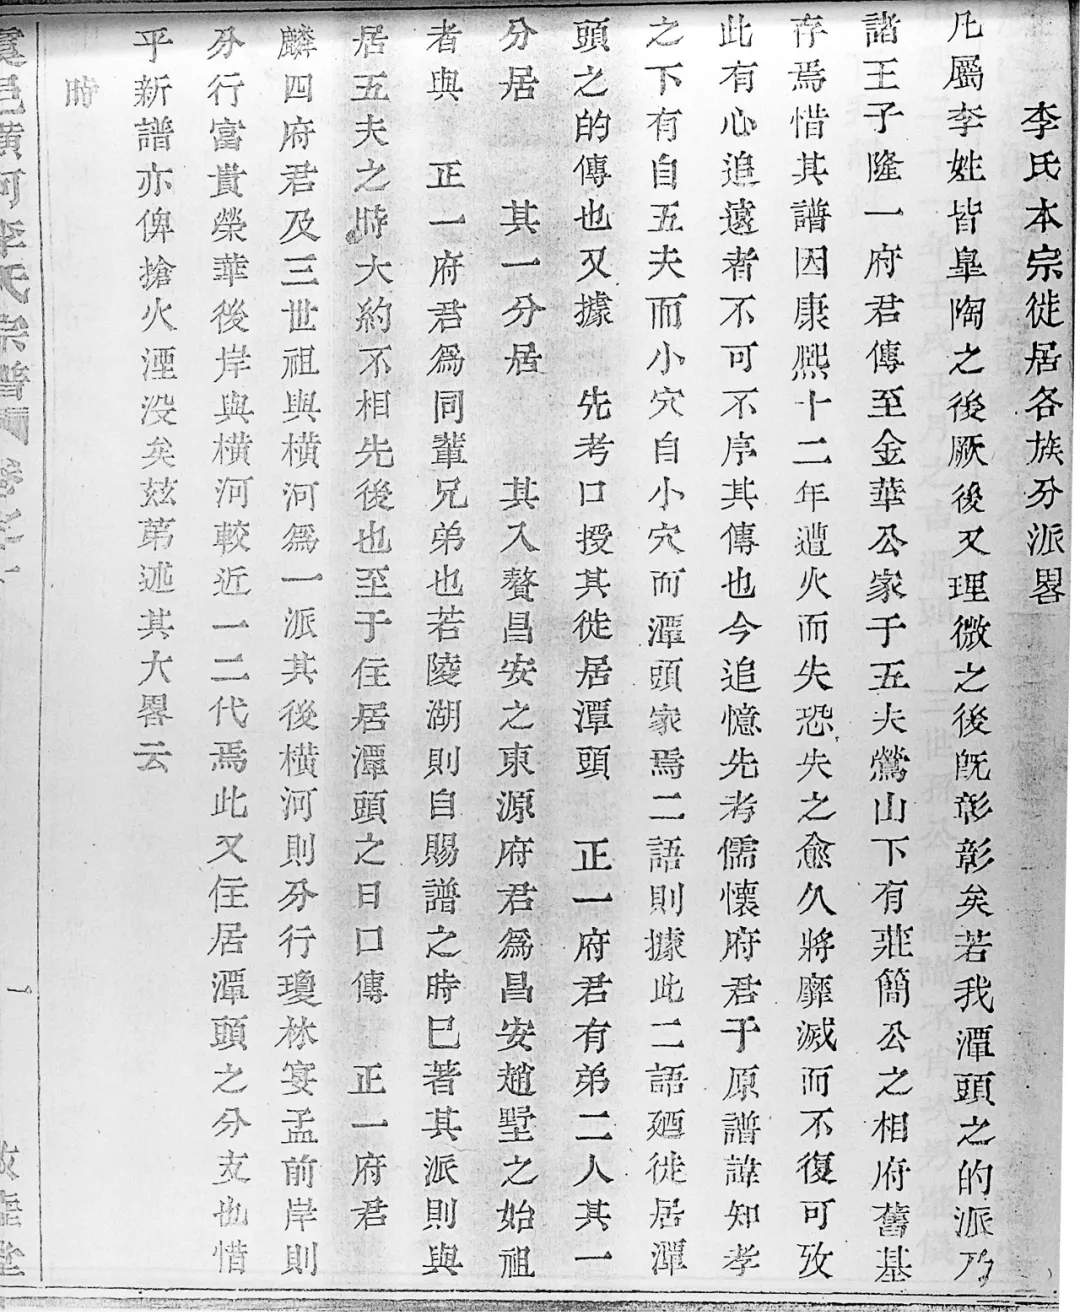 李氏本宗徙居各族分派畧
凡屬李姓皆臯陶之後厥後又理微之後旣彰彰矣若我潭頭之的派乃
諸王子隆一府君傳至金華公家于五夫鶯山下有莊簡公之相府舊基
存焉惜其譜因康熙十二年遭火而失恐失之愈久將靡滅而不復可攷
此有心追遠者不可不序其傳也今追憶先考儒懷府君于原譜諱知孝
之下有自五夫而小穴自小穴而潭頭家焉二語則據此二語廼徙居潭
頭之的傳也又據 先考口授其徙居潭頭 正一府君有弟二人其一
分居 其一分居 其入贅昌安之東源府君爲昌安趙墅之始祖
者與 正一府君爲同輩兄弟也若陵湖則自賜譜之時已著其派則與
居五夫之時大約不相先後也至于住居潭頭之日口傳 正一府君
麟四府君及三世祖與橫河爲一派其後橫河則分行瓊林宴孟前岸則
分行富貴榮華後岸與橫河較近一二代焉此又住居潭頭之分支也惜
乎新譜亦俾搶火湮没矣玆第述其大畧云
時
虞邑橫河李氏宗譜 卷之一
一